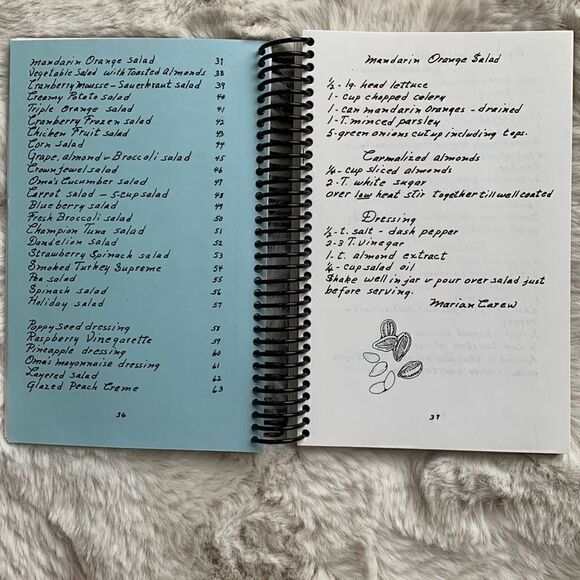 Mandarin Orange Salad 37
Vegetable Salad with Toasted Almonds 38
Cranberry Mousse - Sauerkraut salad 39
Creamy Potato salad 40
Triple Orange salad 41
Cranberry Frozen salad 42
Chicken Fruit salad 43
Corn salad 44
Grape, almond & Broccoli salad 45
Crown Jewel salad 46
Oma's Cucumber salad 47
Carrot salad - 5-cup salad 48
Blueberry salad 49
Fresh Broccoli salad 50
Champion Tuna salad 51
Dandelion salad 52
Strawberry Spinach salad 53
Smoked Turkey Supreme 54
Pea salad 55
Spinach salad 56
Holiday salad 57
Poppy Seed dressing 58
Raspberry Vinegarette 59
Pineapple dressing 60
Oma's mayonnaise dressing 61
Layered salad 62
Glazed Peach Creme 63
36
Mandarin Orange Salad
½ - lg. head lettuce
1 - cup chopped celery
1 - can mandarin oranges - drained
1 - T. minced parsley
5 - green onions cut up including tops.
Carmalized almonds
¼ - cup sliced almonds
2 - T. white sugar
over low heat stir together till well coated
Dressing
½ - t. salt - dash pepper
2-3 T. vinegar
1 - t. almond extract
¼ - cup salad oil
Shake well in jar & pour over salad just
before serving.
Marian Carew
37